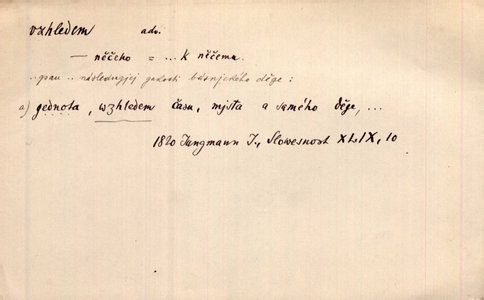 vzhledem adv.
— něčeho = ... k něčemu.
..psau .. následugjcj gakosti básnjckého děge :
a) gednota, wzhledem času, mjsta a samého děge, ...
1820 Jungmann J., Slowesnost XLIX, 10